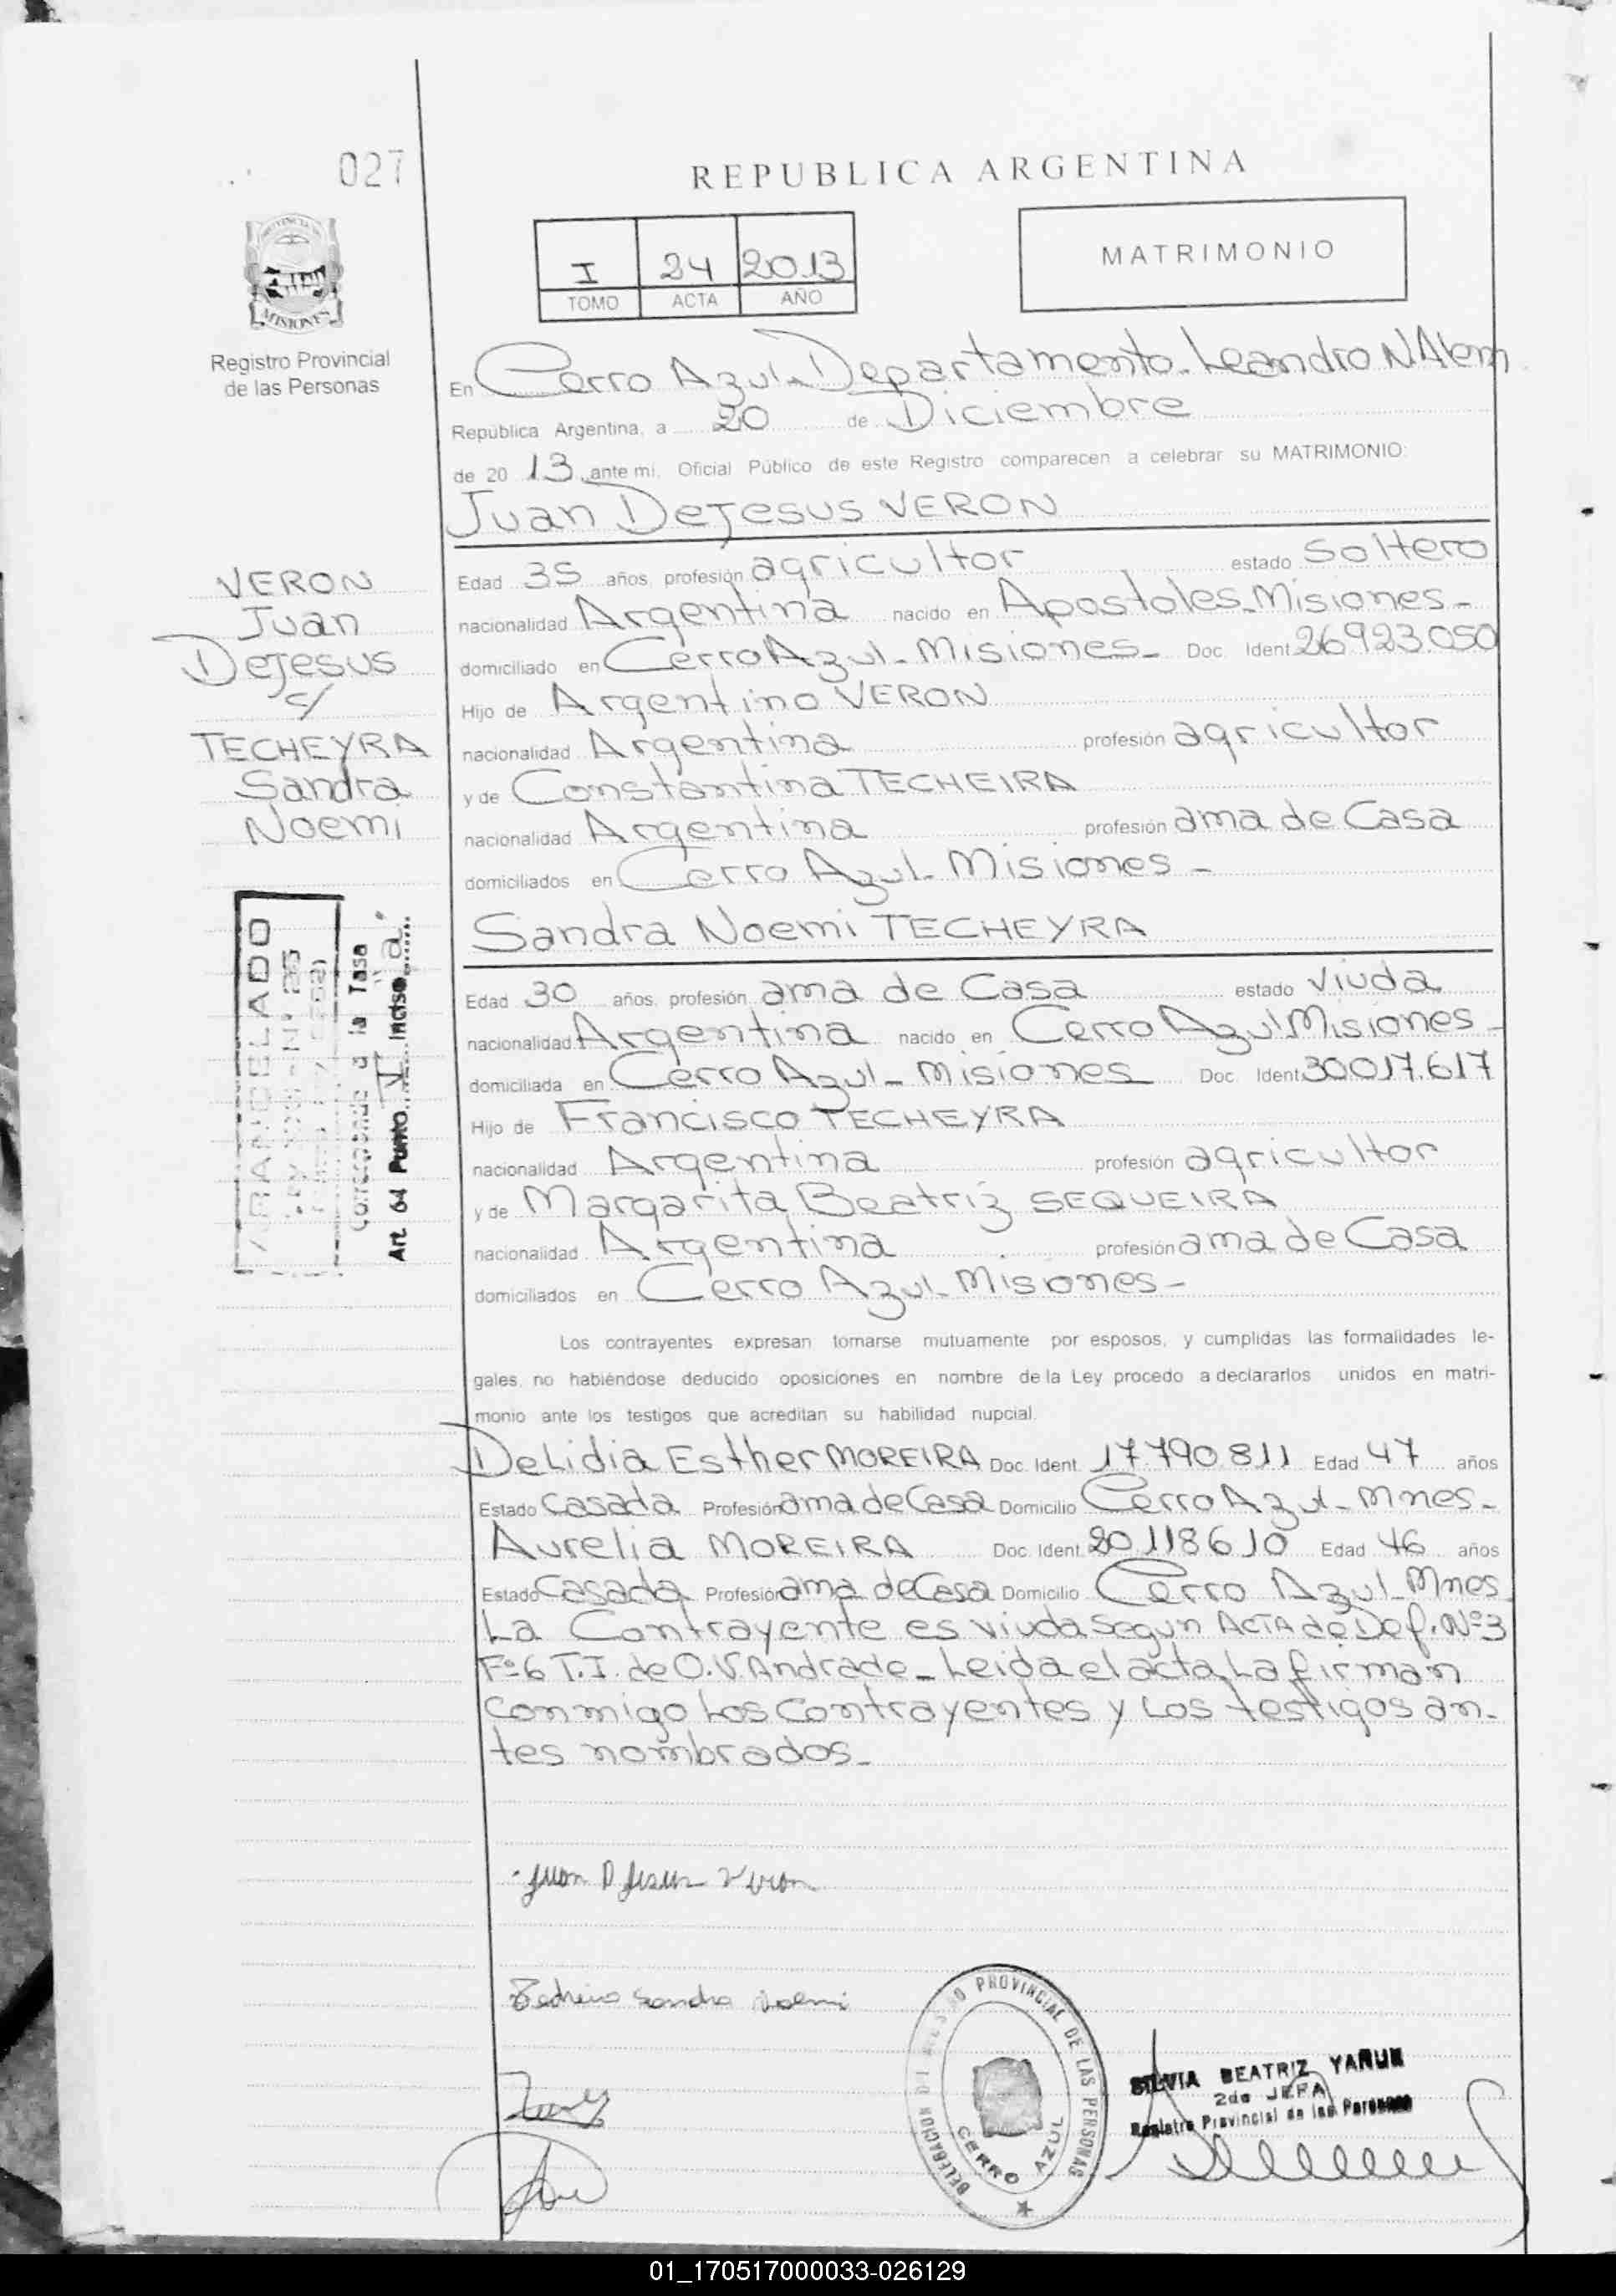 027
REPUBLICA ARGENTINA
MISIONES
Registro Provincial
de las Personas
I 24 2013
TOMO ACTA AÑO
MATRIMONIO
En Cerro Azul - Departamento - Leandro N Alem
República Argentina, a 20 de Diciembre
de 20 13 ante mi, Oficial Público de este Registro comparecen a celebrar su MATRIMONIO:
Juan DeJesus VERON
VERON
Juan
DeJesus
c/
TECHEYRA
Sandra
Noemi
Edad 35 años, profesión agricultor estado Soltero
nacionalidad Argentina nacido en Apostoles - Misiones -
domiciliado en Cerro Azul - Misiones - Doc. Ident. 26923.050
Hijo de Argentino VERON
nacionalidad Argentina profesión agricultor
y de Constantina TECHEIRA
nacionalidad Argentina profesión ama de Casa
domiciliados en Cerro Azul - Misiones -
Sandra Noemi TECHEYRA
Edad 30 años, profesión ama de Casa estado Viuda
nacionalidad Argentina nacido en Cerro Azul Misiones -
domiciliada en Cerro Azul - Misiones Doc. Ident. 30017.617
Hijo de Francisco TECHEYRA
nacionalidad Argentina profesión agricultor
y de Margarita Beatriz SEQUEIRA
nacionalidad Argentina profesión ama de Casa
domiciliados en Cerro Azul - Misiones -
Corresponde a la Tasa
Art. 64 Punto V Inciso "a"
Los contrayentes expresan tomarse mutuamente por esposos, y cumplidas las formalidades le-
gales, no habiéndose deducido oposiciones en nombre de la Ley procedo a declararlos unidos en matri-
monio ante los testigos que acreditan su habilidad nupcial.
DeLidia Esther MOREIRA Doc. Ident. 17.790.811 Edad 47 años
Estado Casada Profesión ama de Casa Domicilio Cerro Azul - Mnes -
Aurelia MOREIRA Doc. Ident. 20.118610 Edad 46 años
Estado Casada Profesión ama de Casa Domicilio Cerro Azul - Mnes
La Contrayente es viuda segun ACTA de Def. Nº 3
Fº 6 T.I. de O.V. Andrade - Leida el acta, La firman
conmigo Los Contrayentes y Los testigos an-
tes nombrados -
Juan D Jesus Veron
Sandra Noemi
PROVINCIAL DE LAS PERSONAS
CERRO AZUL
SILVIA BEATRIZ YAÑUK
2da JEFA
Registro Provincial de las Personas
01_170517000033-026129